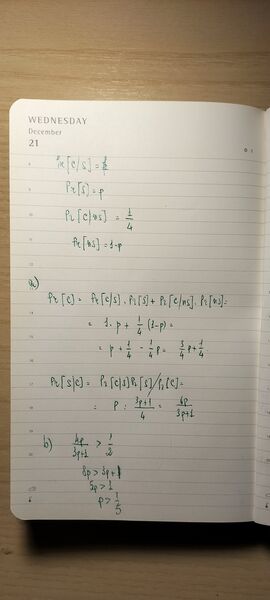 WEDNESDAY
December
21
Pr[C|S] = 1
Pr[S] = p
Pr[C|NS] = 1/4
Pr[NS] = 1-p
a)
Pr[C] = Pr[C|S] . Pr[S] + Pr[C|NS]. Pr[NS] =
= 1. p + 1/4 (1-p) =
= p + 1/4 - 1/4 p = 3/4 p + 1/4
Pr[S|C] = Pr[C|S] Pr[S] / Pr[C] =
= p : (3p+1)/4 = 4p/(3p+1)
b) 4p/(3p+1) > 1/2
8p > 3p+1
5p > 1
p > 1/5